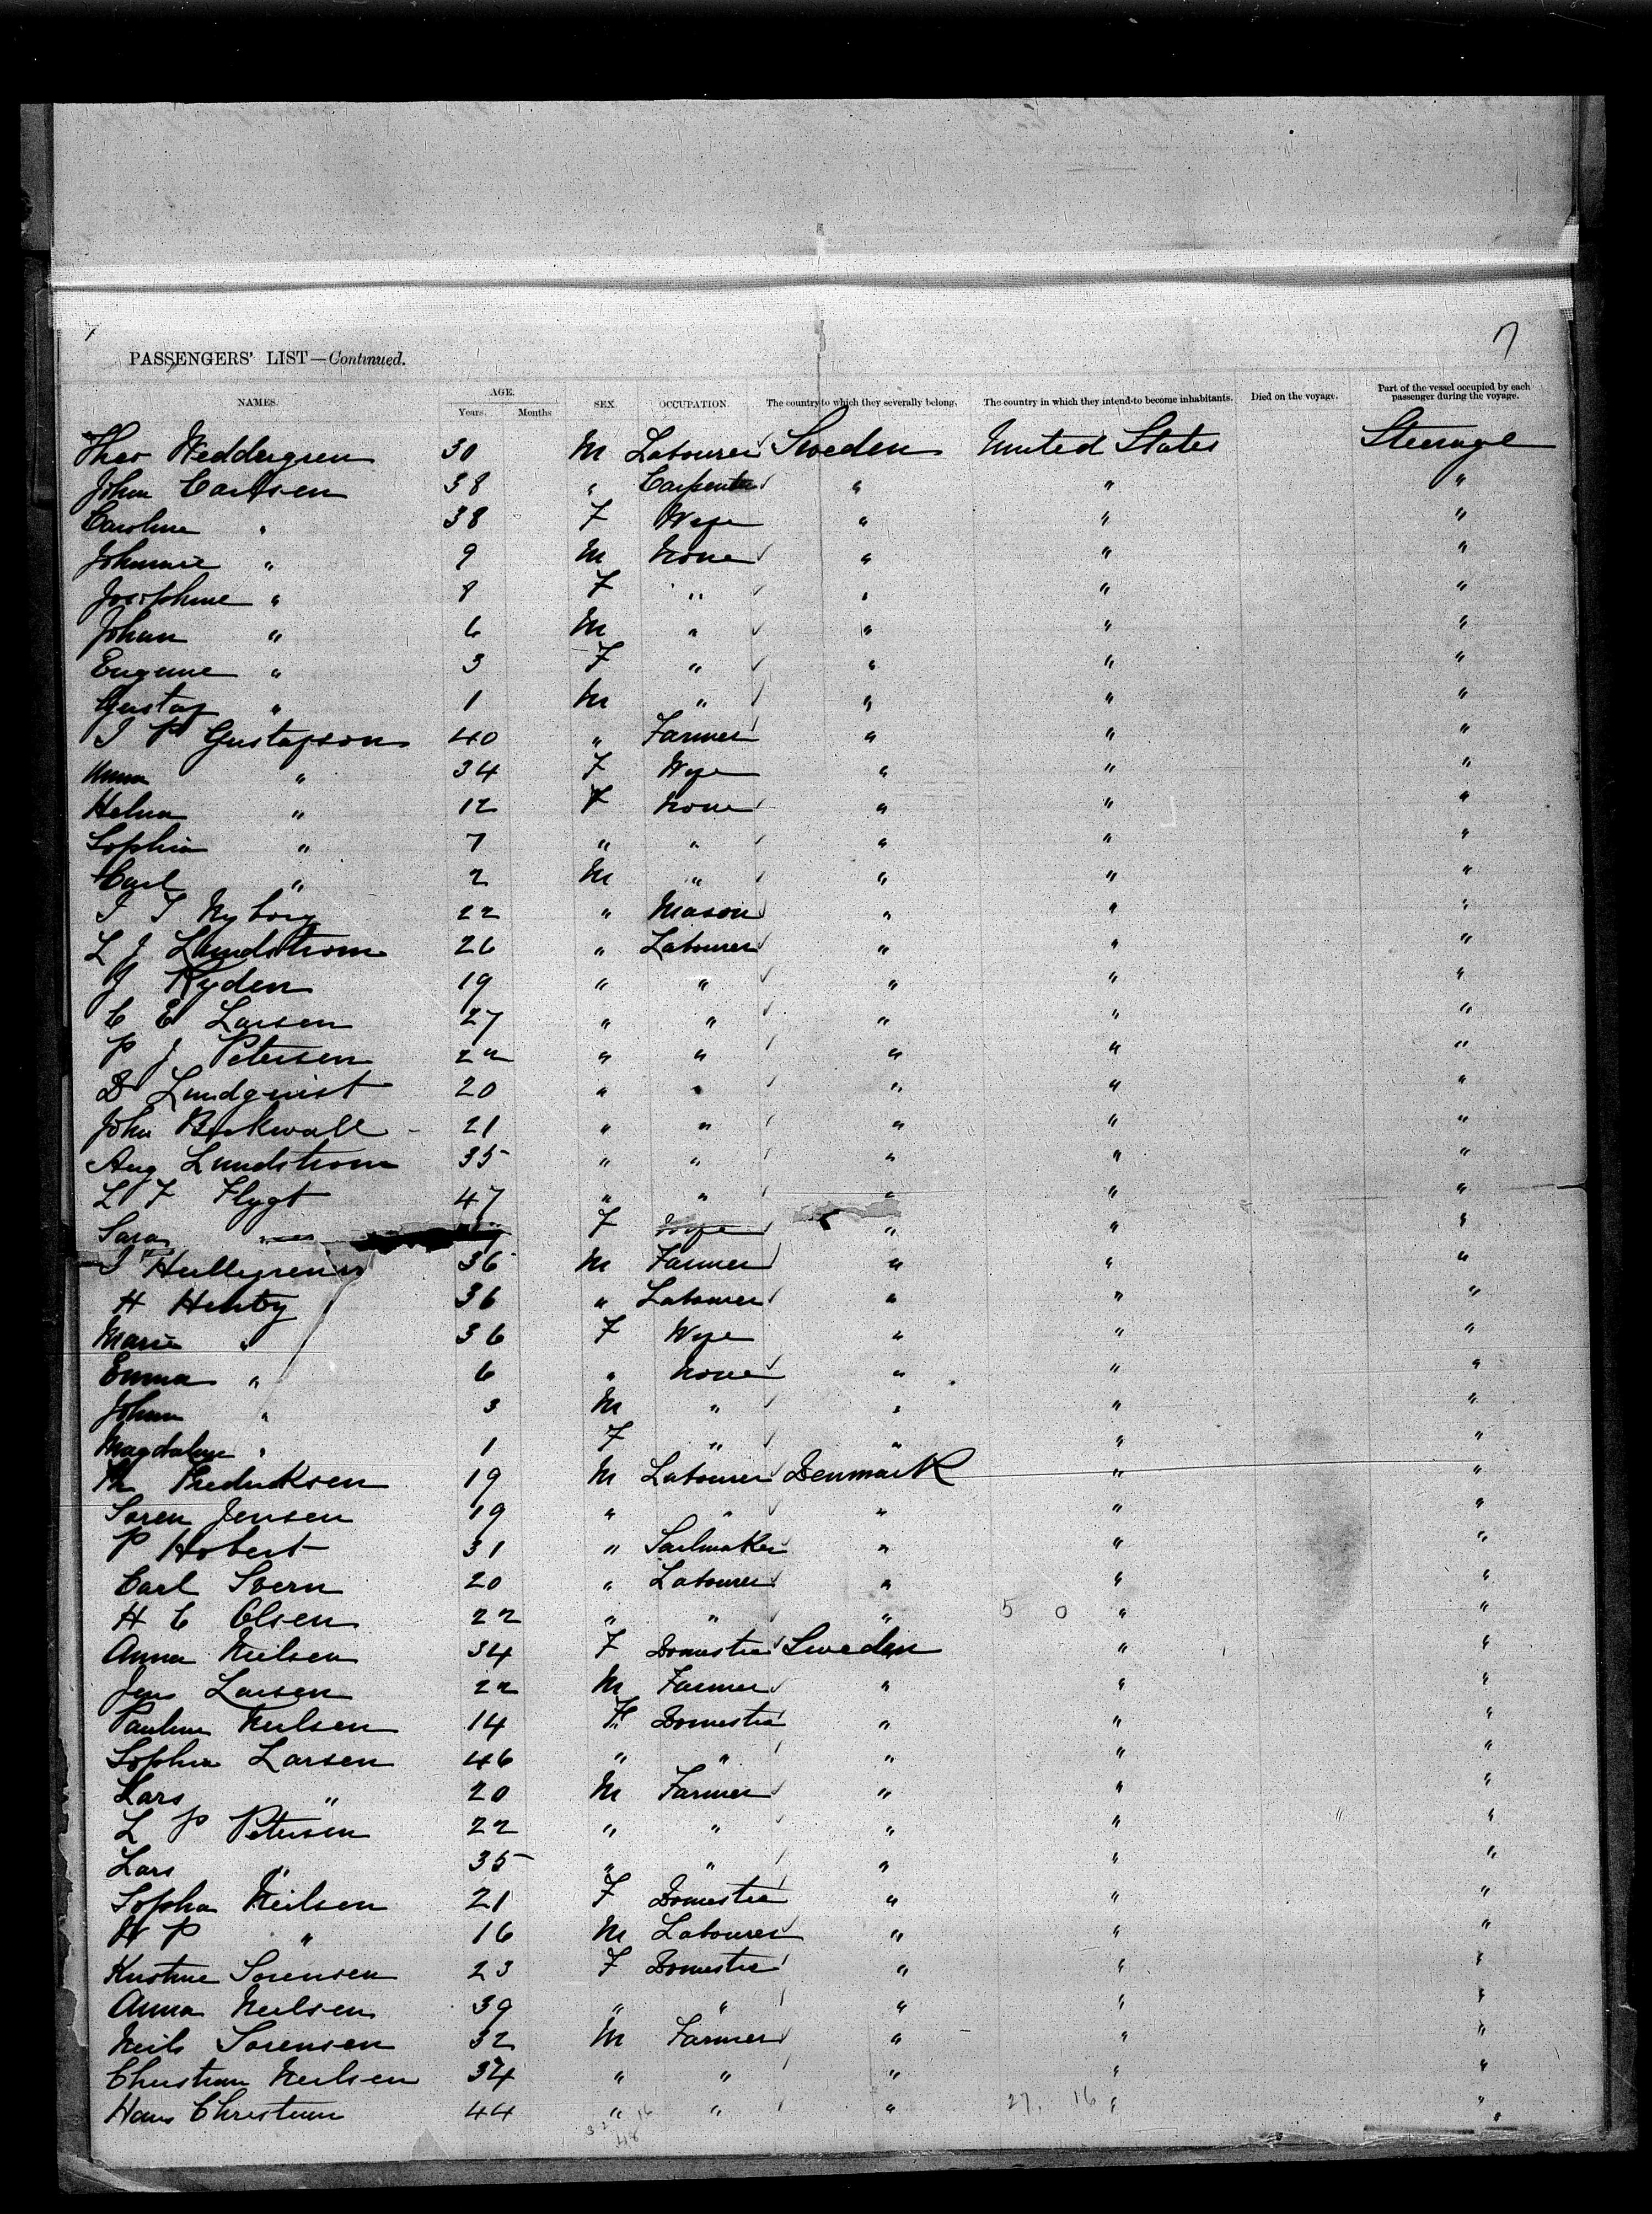 7
PASSENGERS' LIST—Continued.
NAMES. AGE. Years. Months SEX OCCUPATION. The country to which they severally belong. The country in which they intend to become inhabitants. Died on the voyage. Part of the vessel occupied by each passenger during the voyage.
Theo Weddergren 30 M Labourer Sweden United States Steerage
John Carlsen 38 " Carpenter " " "
Caroline " 38 F Wife " " "
Johannie " 9 M None " " "
Josephine " 8 F " " " "
Johan " 6 M " " " "
Eugenie " 3 F " " " "
Gustaf " 1 M " " " "
J P Gustafson 40 " Farmer " " "
Anna " 34 F Wife " " "
Helna " 12 F None " " "
Sophia " 7 " " " " "
Carl " 2 M " " " "
22 " Mason " " "
L J Lundstrom 26 " Labourer " " "
J Ryden 19 " " " " "
C E Larsen 27 " " " " "
P J Petersen 22 " " " " "
D Lundquist 20 " " " " "
John Beckwall 21 " " " " "
Aug Lundstrom 35 " " " " "
L F Flygt 47 " " " " "
Sara " F Wife " " "
36 M Farmer " " "
H 36 " Labourer " " "
Marie " 36 F Wife " " "
Emma " 6 " None " " "
Johan " 3 M " " " "
Magdalene " 1 F " " " "
Fredericksen 19 M Labourer Denmark " "
Soren Jensen 19 " " " " "
P Hobert 31 " Sailmaker " " "
Carl Svern 20 " Labourer " " "
H C Olsen 22 " " " 5 0 " "
Anna Neilsen 34 F Domestic Sweden " "
Jens Larsen 22 M Farmer " " "
Pauline Neilsen 14 F Domestic " " "
Sophia Larsen 46 " " " " "
Lars " 20 M Farmer " " "
L P Petersen 22 " " " " "
Lars " 35 " " " " "
Sophia Neilsen 21 F Domestic " " "
H P " 16 M Labourer " " "
Kristine Sorensen 23 F Domestic " " "
Anna Neilsen 39 " " " " "
Neils Sorensen 32 M Farmer " " "
Christian Neilsen 34 " " " " "
Hans Christian 44 " " " 27. 16 " "
32 16
48